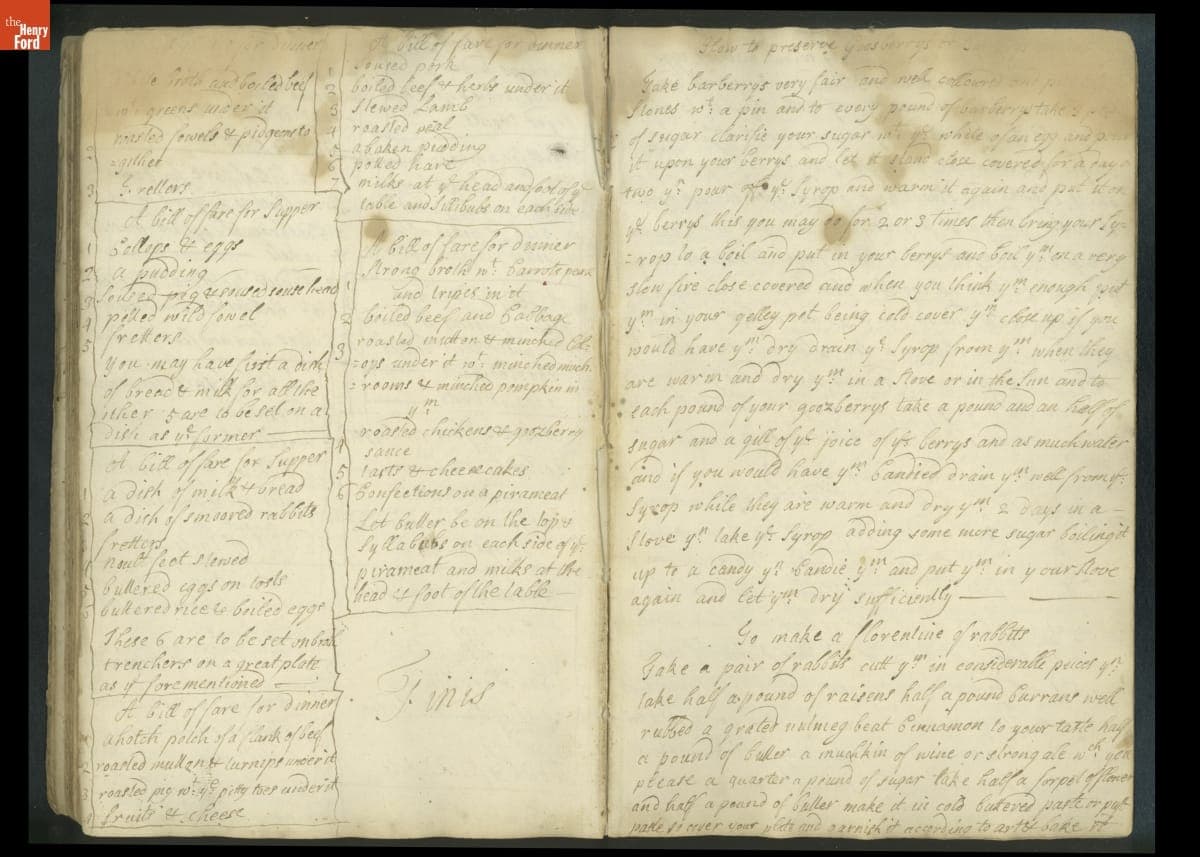 the
Henry
Ford
for dinner
broth and boiled beef
wt greens under it
roasted fowels & pidgeons to
2
=gither
3 fretters
A bill of fare for Supper
1 Collops & eggs
2 a pudding
3 soused pig & soused souse head
4 potted wild fowel
5 fretters
you may have first a dish
of bread & milk for all the
other 5 are to be set on a
dish as ye former
A bill of fare for Supper
1 a dish of milk & bread
2 a dish of smoored rabbits
fretters
noult feet stewed
5 buttered eggs on tosts
buttered rice & boiled eggs
These 6 are to be set on
trenchers on a great plate
as ye forementioned
A bill of fare for dinner
1 a hotch potch of a flank of beef
2 roasted mutton & turnips under it
3 roasted pig wt ye pitty toes under it
4 fruits & cheese
A bill of fare for dinner
1 soused pork
2 boiled beef & herbs under it
3 stewed Lamb
4 roasted veal
5 a baken pudding
6 potted hare
7 milks at ye head and foot of ye
table and sillibubs on each side
A bill of fare for dinner
1 strong broth wt Carrots pease
and tripes in it
2 boiled beef and Cabbage
3 roasted mutton & minched Coll=
=ops under it wt minched mush=
=rooms & minched pompkin in
ym
4 roasted chickens & goozberry
sauce
5 tarts & cheesecakes
6 Confections on a pirameat
Let butter be on the top &
Syllabubs on each side of ye
pirameat and milks at the
head & foot of the table
Finis
How to preserve goosberrys or
Take barberrys very fair and well coloured
stones wt a pin and to every pound of barberrys take
of sugar clarifie your sugar wt ye white of an egg and pour
it upon your berrys and let it stand close covered for a day or
two yn pour off ye Syrop and warm it again and put it on
ye berrys this you may do for 2 or 3 times then bring your Sy=
=rop to a boil and put in your berrys and boil ym on a very
slow fire close covered and when you think ym enough put
ym in your gelley pot being cold cover ym close up if you
would have ym dry drain ye Syrop from ym when they
are warm and dry ym in a stove or in the Sun and to
each pound of your goozberrys take a pound and an half of
sugar and a gill of ye joice of ye berrys and as much water
and if you would have ym Candied drain ym well from ye
Syrop while they are warm and dry ym 2 days in a
stove yn take ye Syrop adding some more sugar boiling it
up to a candy yn Candie ym and put ym in your stove
again and let ym dry sufficiently
To make a florentine of rabbits
Take a pair of rabbits cutt ym in considerable peices yn
take half a pound of raisens half a pound Currans well
rubbed a grated nutmeg beat Cinnamon to your taste half
a pound of butter a muchkin of wine or strong ale wch you
please a quarter a pound of sugar take half a forpet of flower
and half a pound of butter make it in cold buttered paste or puft
paste so cover your plate and garnish it according to art & bake it